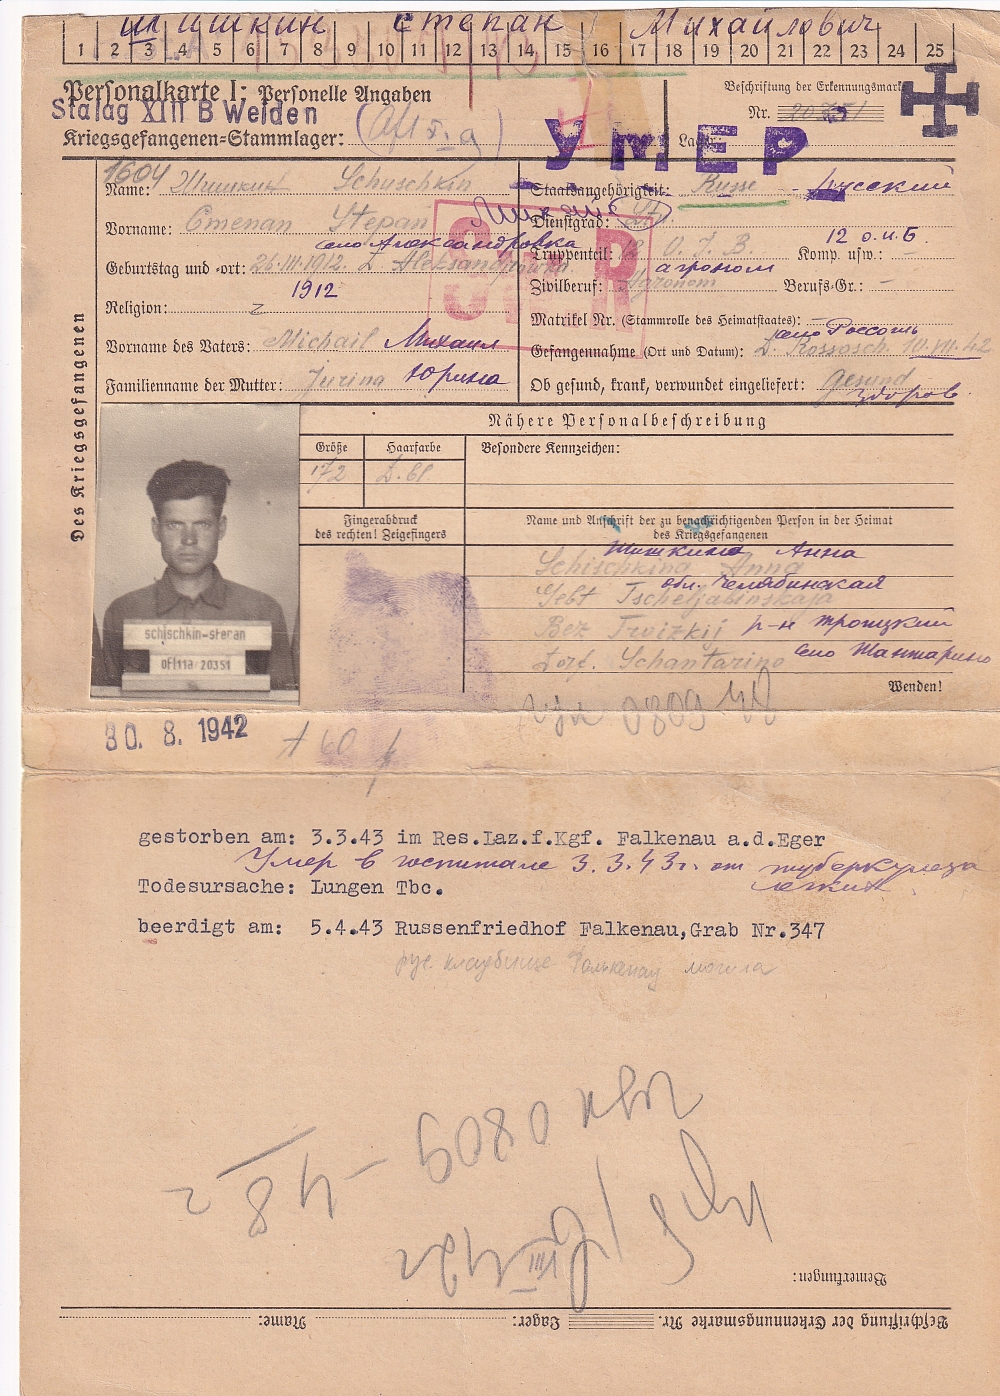 Шишкин Степан Михайлович
1 2 3 4 5 6 7 8 9 10 11 12 13 14 15 16 17 18 19 20 21 22 23 24 25
Personalkarte I: Personelle Angaben
Beschriftung der Erkennungsmarke
Stalag XIII B Weiden
Nr. 20351
Kriegsgefangenen-Stammlager:
Lager:
УМЕР
1604
Des Kriegsgefangenen
Name: Шишкин Schuschkin
Staatsangehörigkeit: Russe русский
Vorname: Степан Stepan
Dienstgrad: Lt.
село Александровка
Truppenteil: O. I. B. Komp. usw.: -
12 о.и.б.
Geburtstag und -ort: 26.III.1912. D. Aleksandrowka
агроном
Zivilberuf: Agronom Berufs-Gr.: -
1912
Religion:
Matrikel Nr. (Stammrolle des Heimatstaates):
село Россошь
Vorname des Vaters: Michail Михаил
Gefangennahme (Ort und Datum): D. Rossosch. 10.VII.42
Familienname der Mutter: Jurina Юрина
Ob gesund, krank, verwundet eingeliefert: gesund
здоров
Nähere Personalbeschreibung
Größe Haarfarbe Besondere Kennzeichen:
172 d.bl
Fingerabdruck
des rechten! Zeigefingers
Name und Anschrift der zu benachrichtigenden Person in der Heimat
des Kriegsgefangenen
Шишкина Анна
Schischkina Anna
обл. Челябинская
Gebt Tscheljabinskaja
Bez Troizkij р-н Троцкий
Dorf. Schantarino село Шантарино
Wenden!
schischkin-stepan
Of11a/20351
30. 8. 1942
gestorben am: 3.3.43 im Res.Laz.f.Kgf. Falkenau a.d.Eger
Умер в госпитале 3.3.43г. от туберкулеза
легких
Todesursache: Lungen Tbc.
beerdigt am: 5.4.43 Russenfriedhof Falkenau,Grab Nr.347
рус. кладбище Фалькенау могила
0809
48
Bemerkungen:
Beschriftung der Erkennungsmarke Nr. Lager: Name: